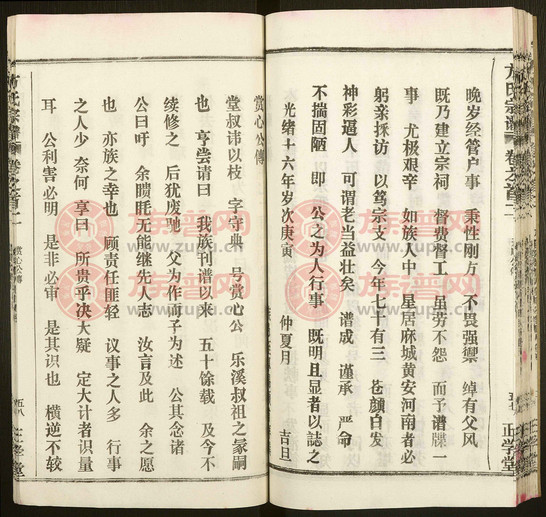 方氏宗谱 卷之首二
正学堂
晚岁经管户事 秉性刚方 不畏强禦 绰有父风
既乃建立宗祠 督费督工 虽劳不怨 而予谱牒一
事 尤极艰辛 如族人中 星居麻城黄安河南者必
躬亲採访 以笃宗支 今年七十有三 苍颜白发
神彩逼人 可谓老当益壮矣 谱成 谨承 严命
不揣固陋 即 公之为人行事 既明且显者以誌之
光绪十六年岁次庚寅 仲夏月 吉旦
赏心公傳
堂叔讳以枝 字守典 号赏心公 乐溪叔祖之冢嗣
也 亨尝请曰 我族刊谱以来 五十馀载 及今不
续修之 后犹废弛 父为作而子为述 公其念诸
公曰吁 余瞶眊无能继先人志 汝言及此 余之愿
也 亦族之幸也 顾责任匪轻 议事之人多 行事
之人少 奈何 享曰 所贵乎决大疑 定大计者识量
耳 公利害必明 是非必审 是其识也 横逆不较
方氏宗谱 卷之首二
赏心公傳
五八
族谱网
www.zupu.cn
族谱网
www.zupu.cn
族谱网
www.zupu.cn
族谱网
www.zupu.cn